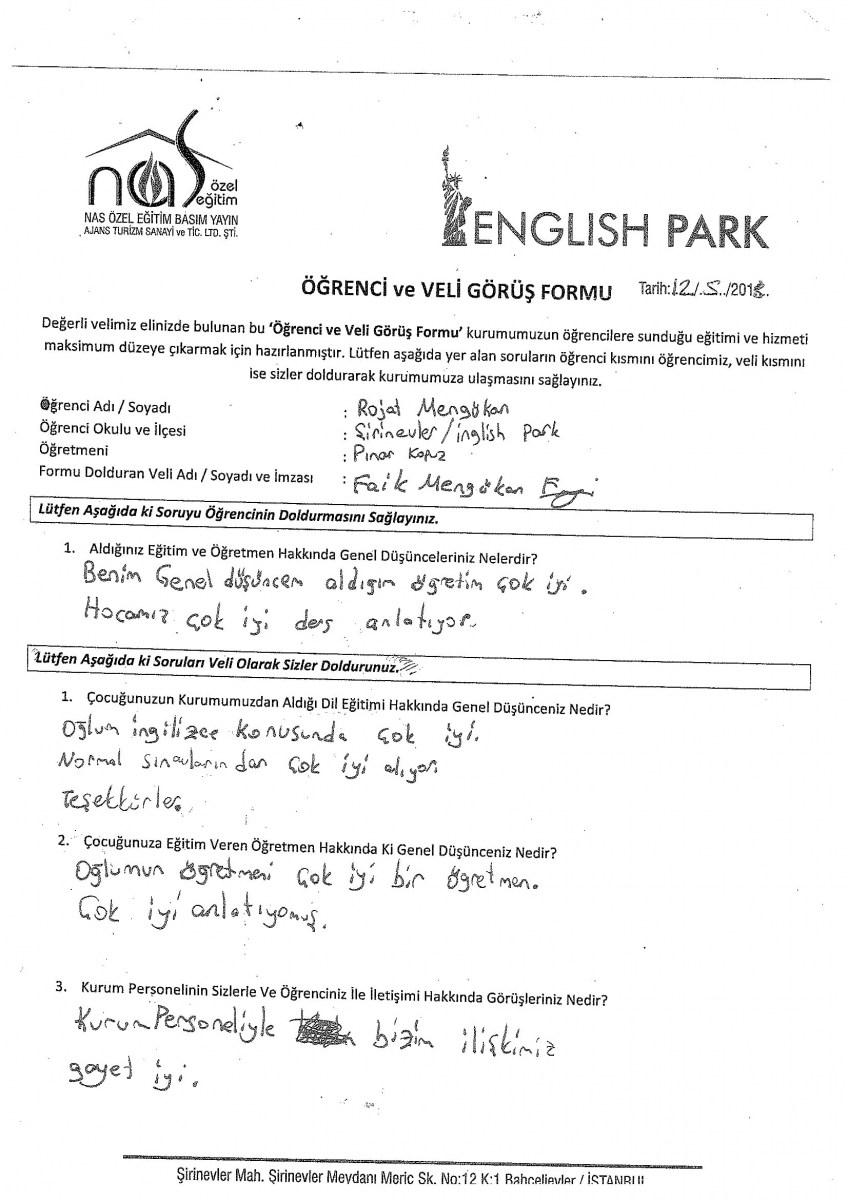 nas özel eğitim
NAS ÖZEL EĞİTİM BASIM YAYIN
AJANS TURİZM SANAYİ ve TİC. LTD. ŞTİ.
ENGLISH PARK
ÖĞRENCİ ve VELİ GÖRÜŞ FORMU Tarih:12/.5../2018.
Değerli velimiz elinizde bulunan bu 'Öğrenci ve Veli Görüş Formu' kurumumuzun öğrencilere sunduğu eğitimi ve hizmeti
maksimum düzeye çıkarmak için hazırlanmıştır. Lütfen aşağıda yer alan soruların öğrenci kısmını öğrencimiz, veli kısmını
ise sizler doldurarak kurumumuza ulaşmasını sağlayınız.
Öğrenci Adı / Soyadı : Rojat Mengökan
Öğrenci Okulu ve İlçesi : Şirinevler/inglish park
Öğretmeni : Pınar Kopuz
Formu Dolduran Veli Adı / Soyadı ve İmzası : Faik Mengökan
Lütfen Aşağıda ki Soruyu Öğrencinin Doldurmasını Sağlayınız.
1. Aldığınız Eğitim ve Öğretmen Hakkında Genel Düşünceleriniz Nelerdir?
Benim Genel düşüncem aldığım öğretim çok iyi.
Hocamız çok iyi ders anlatıyor.
Lütfen Aşağıda ki Soruları Veli Olarak Sizler Doldurunuz.
1. Çocuğunuzun Kurumumuzdan Aldığı Dil Eğitimi Hakkında Genel Düşünceniz Nedir?
Oğlum ingilizce konusunda çok iyi.
Normal sınavlarından çok iyi alıyor.
Teşekkürler.
2. Çocuğunuza Eğitim Veren Öğretmen Hakkında Ki Genel Düşünceniz Nedir?
Oğlumun öğretmeni çok iyi bir öğretmen.
Çok iyi anlatıyomuş.
3. Kurum Personelinin Sizlerle Ve Öğrenciniz İle İletişimi Hakkında Görüşleriniz Nedir?
Kurum Personeliyle bizim ilişkimiz
gayet iyi.
Şirinevler Mah. Şirinevler Meydanı Meriç Sk. No:12 K:1 Bahçelievler / İSTANBUL